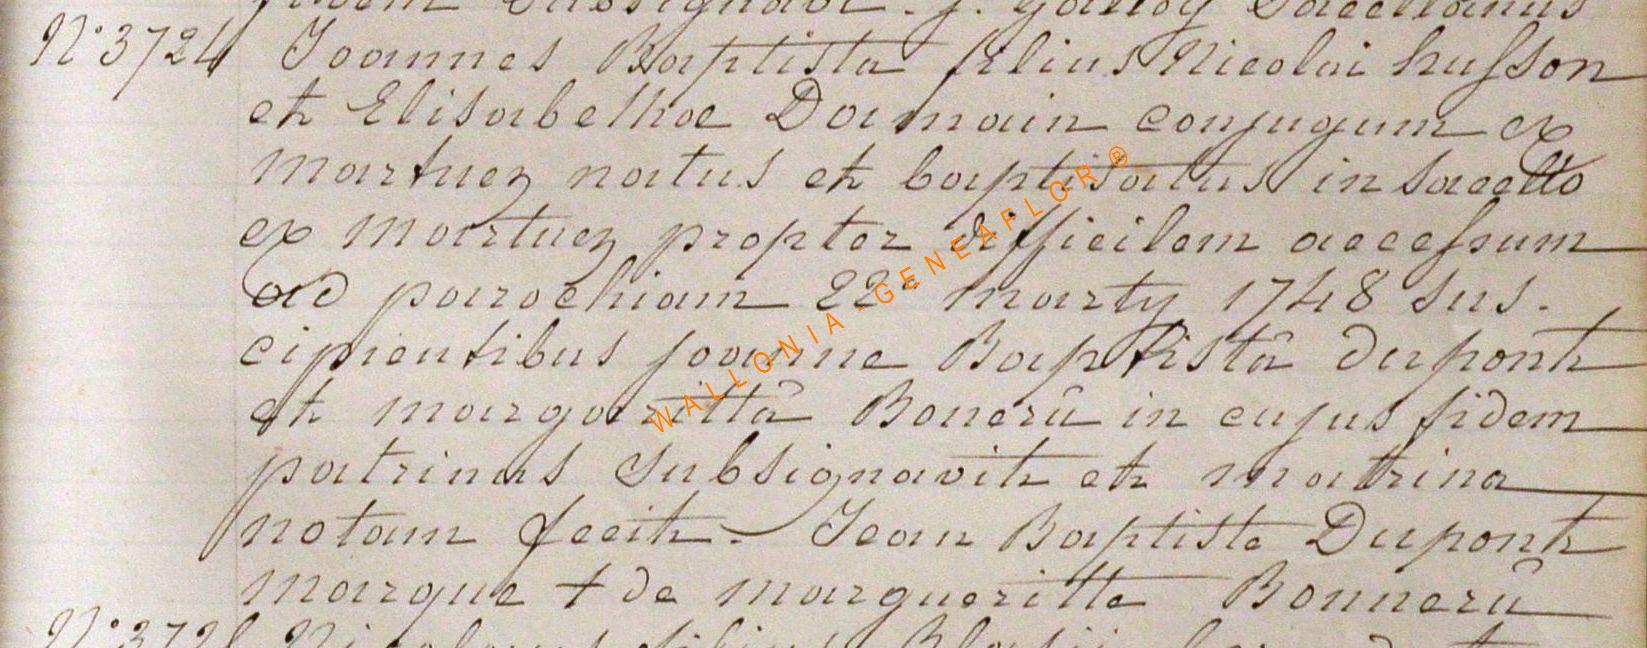 fidem subsignavi. j. galloy Sacellanus
N° 3724 Joannes Baptista filius Nicolai husson
et Elisabethae Damain conjugum ex
martuez natus et baptisatus in sacello
ex martuez propter difficilem accessum
ad parochiam 22a marty 1748 sus.
cipientibus joanne Baptistâ dupont
et margarittâ Bonerû in cujus fidem
patrinus subsignavit et matrina
notam fecit. Jean Baptiste Dupont
marque + de margueritte Bonnerû
N° 372 Nicolaus filius Blasii
WALLONIA-GENEAFLOR®